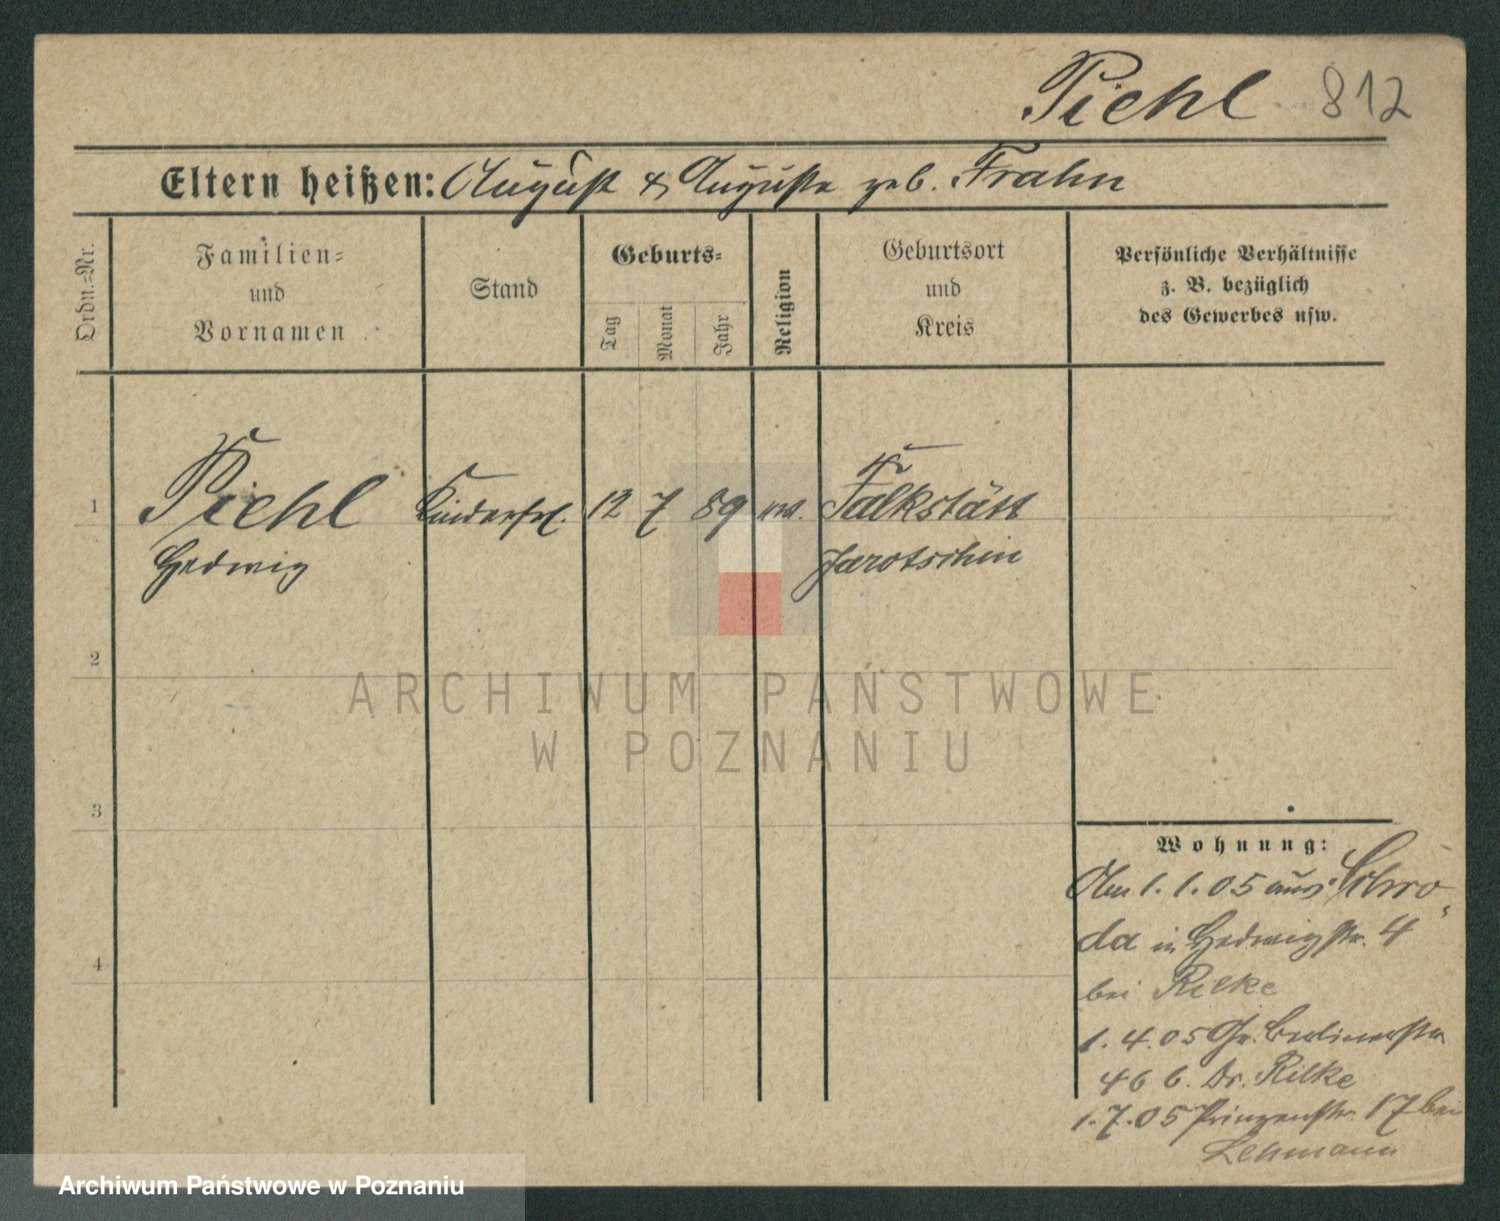 Piehl 812
Eltern heißen: August & Auguste geb. Frahn
Ordn.-Nr.
Familien-
und
Vornamen
Stand
Geburts-
Tag
Monat
Jahr
Religion
Geburtsort
und
Kreis
Persönliche Verhältnisse
z. B. bezüglich
des Gewerbes usw.
1 Piehl Kinderfrl. 12 7 89 ev. Falkstätt
Hedwig Jarotschin
2
3
4
Wohnung:
Am 1. 1. 05 aus Schro-
da in Hedwigstr. 4
bei Rilke
1. 4. 05 Gr. Berlinerstr
46 b. Dr. Rilke
1. 7. 05 Prinzenstr. 17 bei
Lehmann
ARCHIWUM PAŃSTWOWE
W POZNANIU
Archiwum Państwowe w Poznaniu